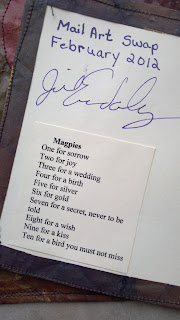 Mail Art Swap
February 2012
Magpies
One for sorrow
Two for joy
Three for a wedding
Four for a birth
Five for silver
Six for gold
Seven for a secret, never to be
told
Eight for a wish
Nine for a kiss
Ten for a bird you must not miss